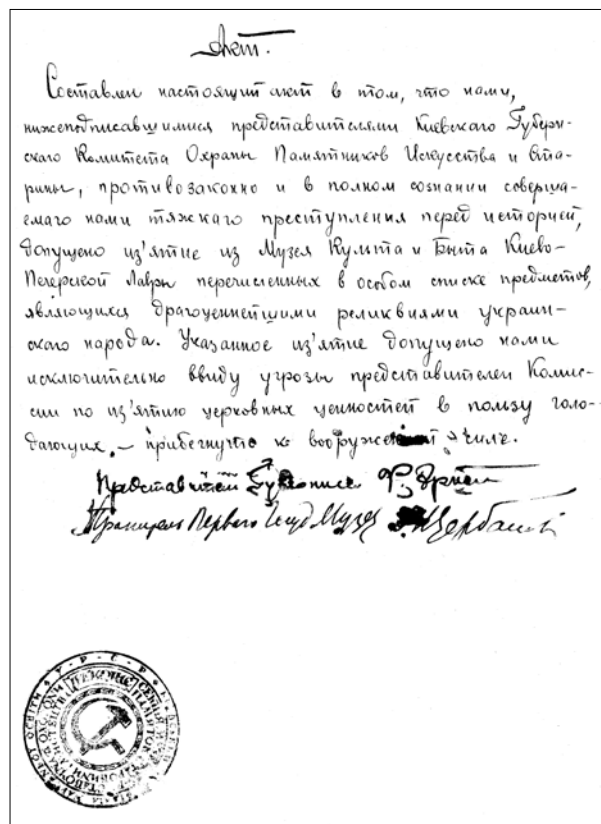 Акт.
Составлен настоящий акт в том, что нами,
нижеподписавшимися представителями Киевскаго Губерн-
скаго Комитета Охраны Памятников Искусства и Ста-
рины, противозаконно и в полном сознании соверша-
емаго нами тяжкаго преступления перед историей,
допущено из'ятие из Музея Культа и Быта Киево-
Печерской Лавры перечисленных в особом списке предметов,
являющихся драгоценнейшими реликвиями украин-
скаго народа. Указанное из'ятие допущено нами
исключительно ввиду угрозы представителей Комис-
сии по из'ятию церковных ценностей в пользу голо-
дающих, – прибегнуть к вооруженной силе.
Представители Ф Эрнст
Хранитель Перваго Музея Щербаківський